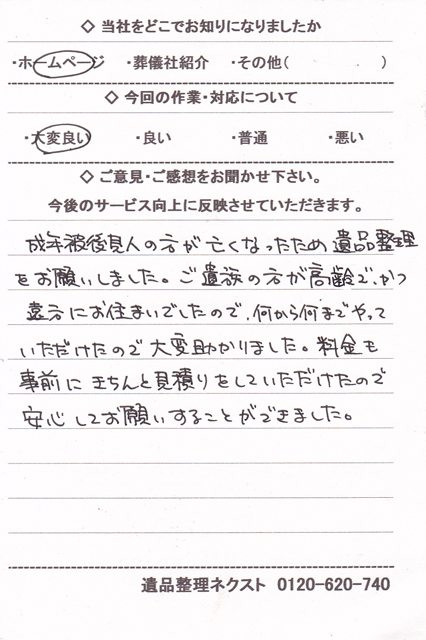 ◇ 当社をどこでお知りになりましたか
・ホームページ ・葬儀社紹介 ・その他( )
◇ 今回の作業・対応について
・大変良い ・良い ・普通 ・悪い
◇ ご意見・ご感想をお聞かせ下さい。
今後のサービス向上に反映させていただきます。
成年被後見人の方が亡くなったため遺品整理
をお願いしました。ご遺族の方が高齢で、かつ
遠方にお住まいでしたので、何から何までやって
いただけたので大変助かりました。料金も
事前にきちんと見積りをしていただけたので
安心してお願いすることができました。
遺品整理ネクスト 0120-620-740